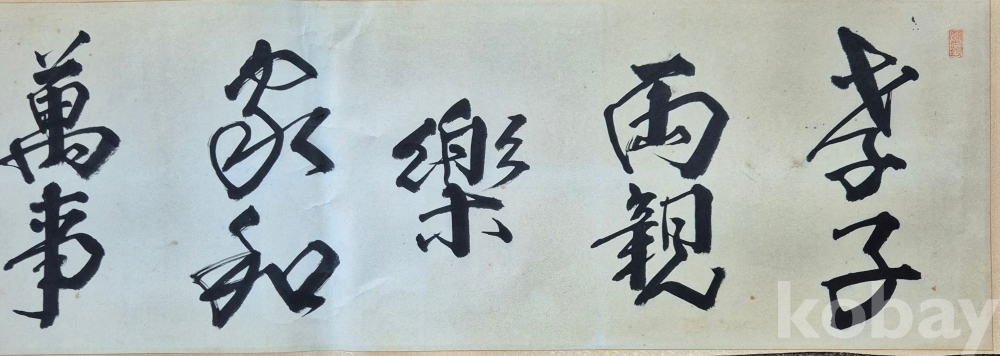 孝子
兩親
樂
家和
萬事
kobay